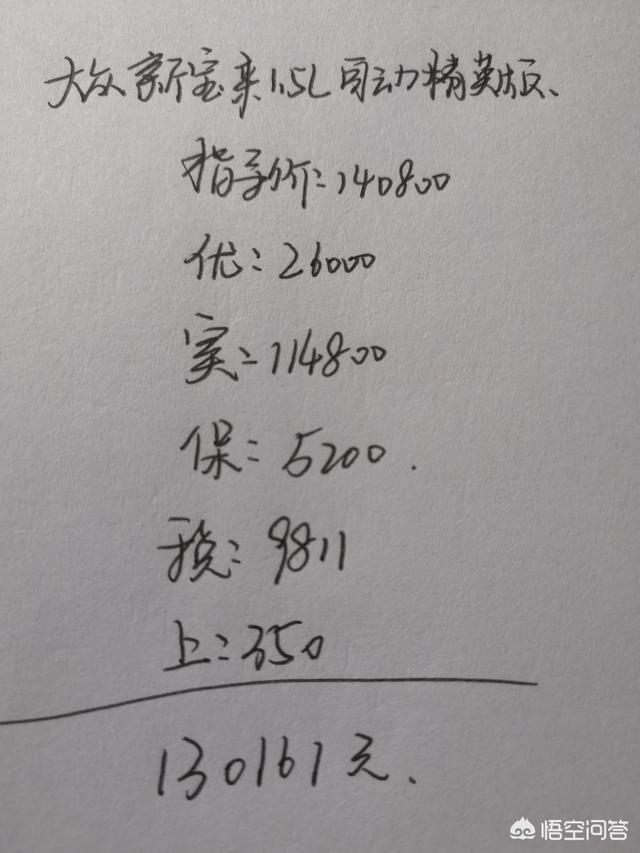 大众新宝来1.5L自动精英版、
指导价:140800
优:26000
实:114800
保:5200.
税:9811
上:350
130161元.
悟空问答